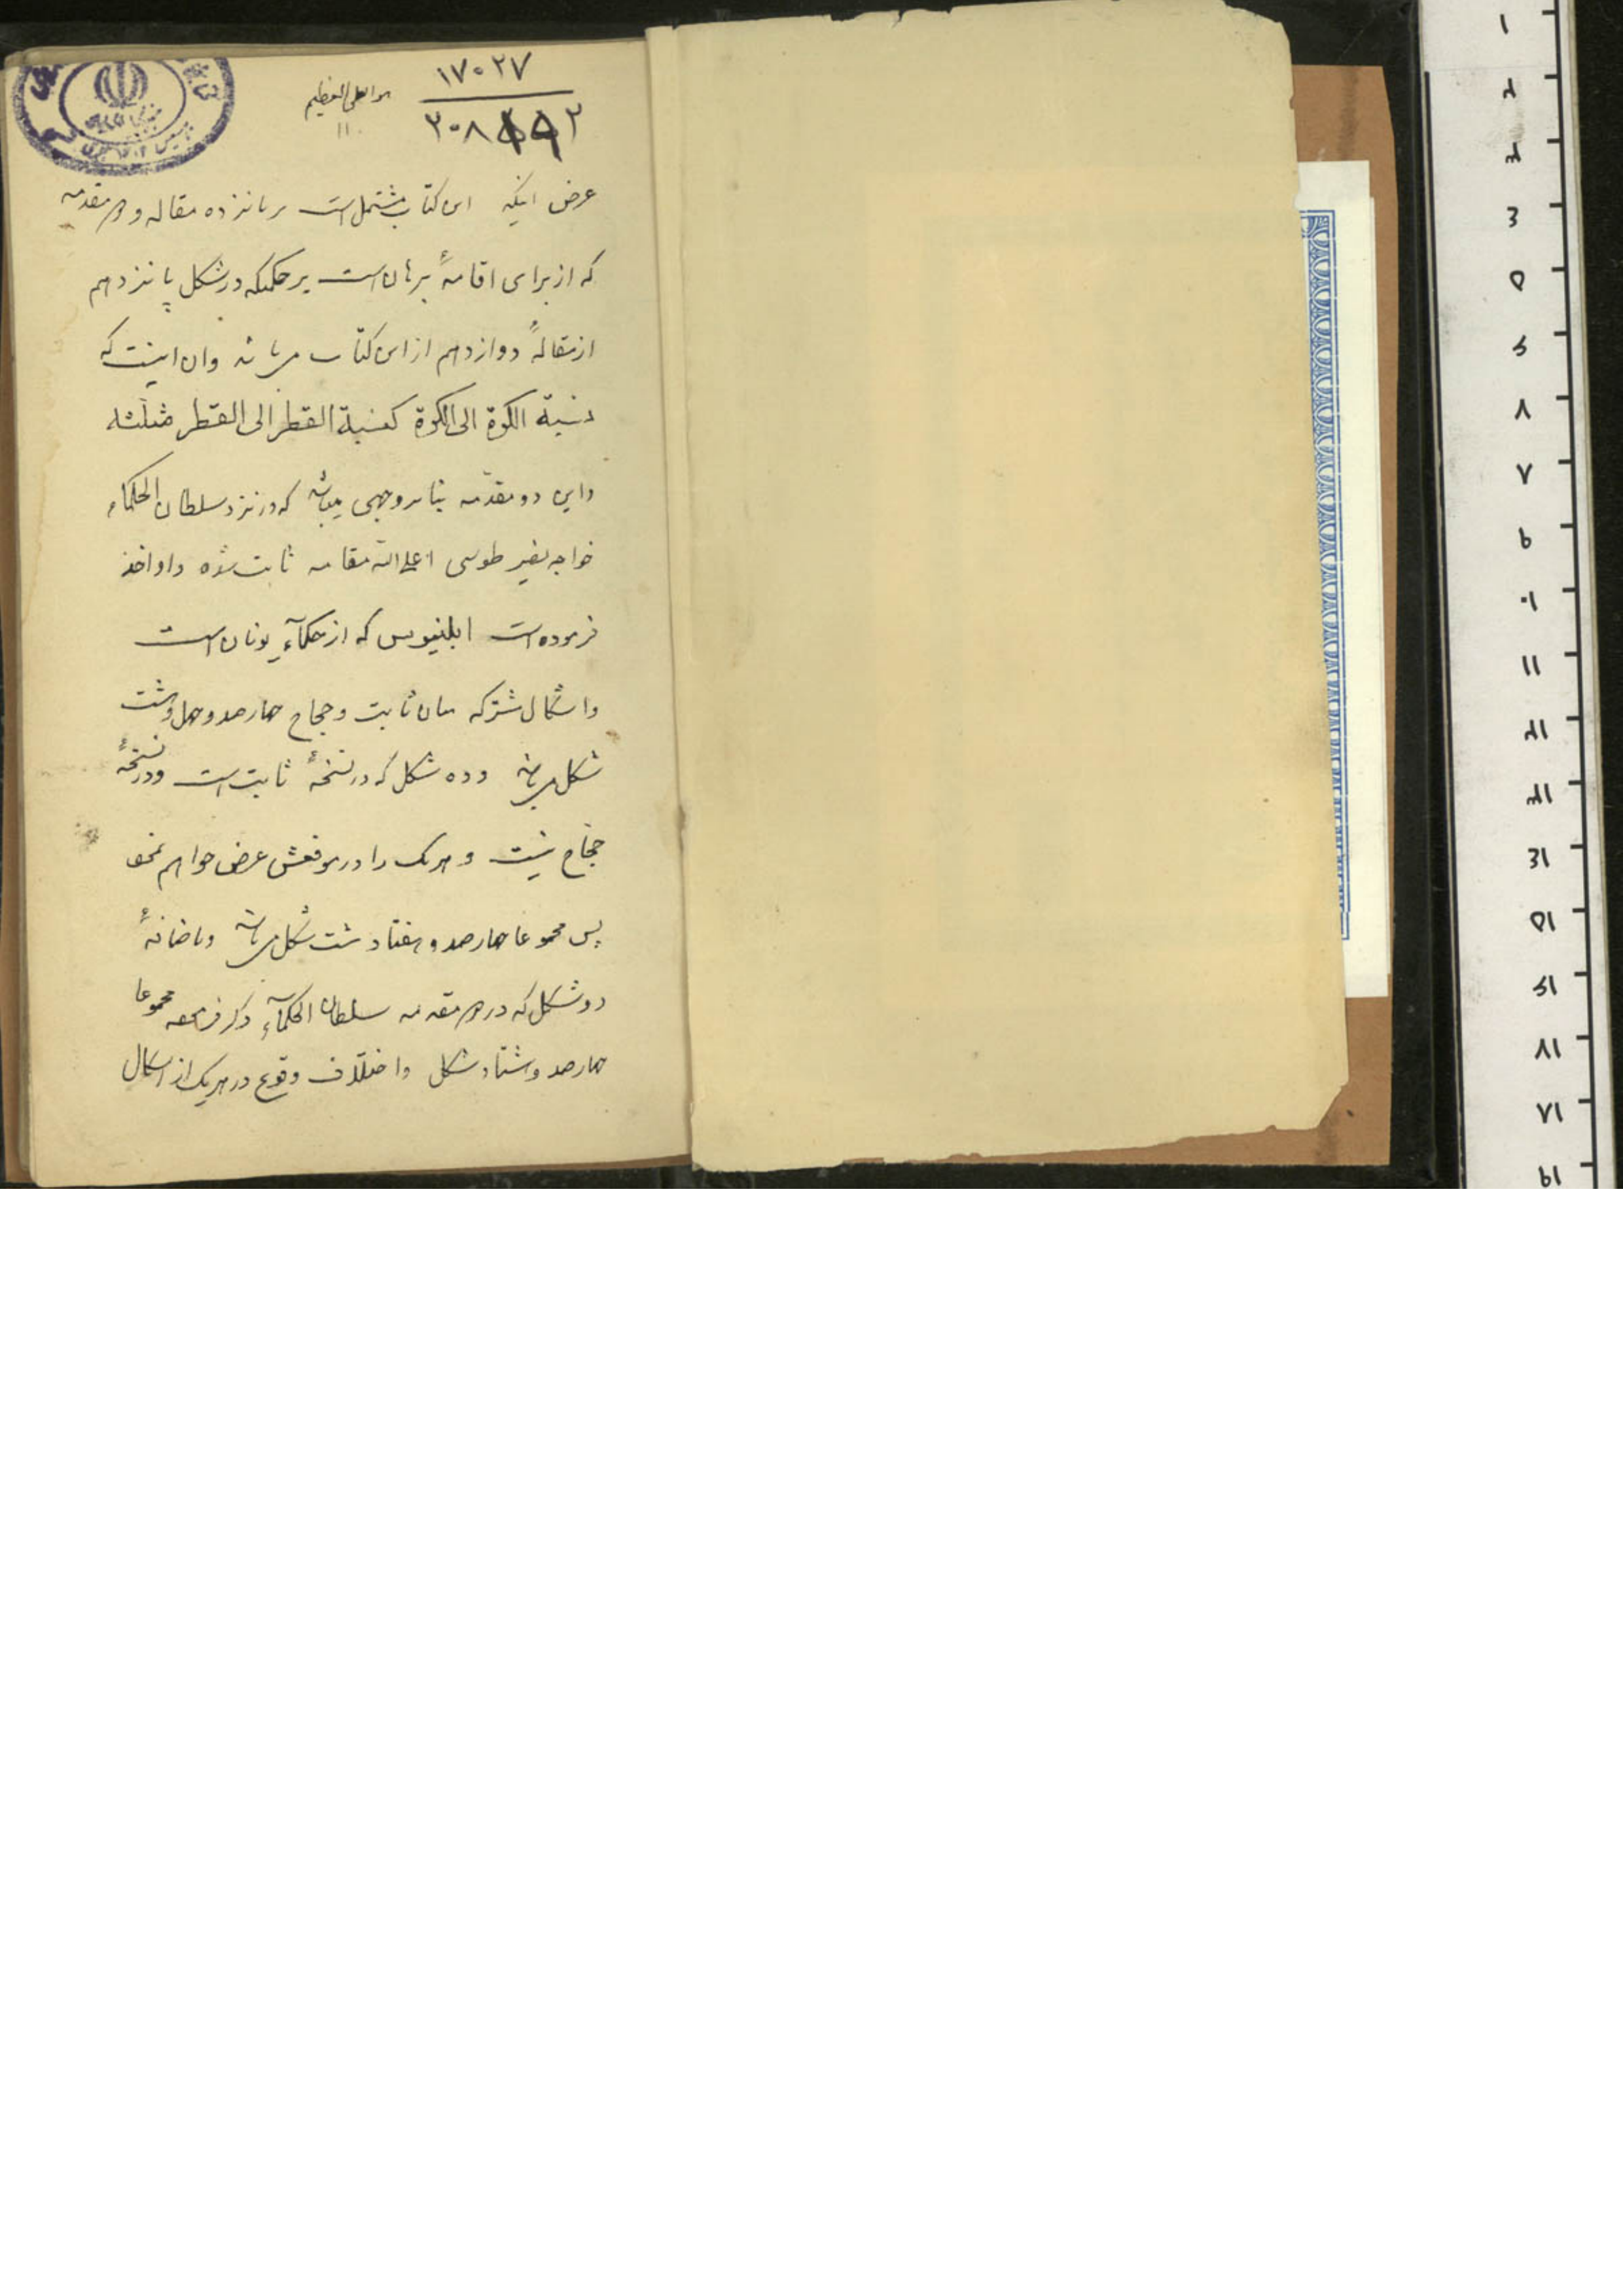 ۱۷۰۲۷
۲۰۸
هو العلی العظیم
عرض اینکه این کتاب مشتمل است بر پانزده مقاله و دو مقدمه
که از برای اقامهٔ برهان است بر حکمیکه در شکل پانزدهم
از مقالهٔ دوازدهم از این کتاب میباشد وان اینست که
نسبة الکرة الی الکرة کنسبة القطر الی القطر مثلثه
واین دو مقدمه بنابر وجهی میباشد که در نزد سلطان الحکماء
خواجه نصیر طوسی اعلی الله مقامه ثابت شده و او اخذ
فرموده است ابلنیوس که از حکمآء یونان است
واشکال مشترکه میان ثابت و حجاج چهارصد و چهل و هشت
شکل میباشد و ده شکل که در نسخهٔ ثابت است و در نسخهٔ
حجاج نیست و هریک را در موقعش عرض خواهم نمود
پس مجموعا چهارصد و هفتاد هشت شکل میباشد و باضافهٔ
دو شکل که در دو مقدمه سلطان الحکمآء ذکر فرموده مجموعا
چهارصد و هشتاد شکل و اختلاف وقوع در هریک از اشکال